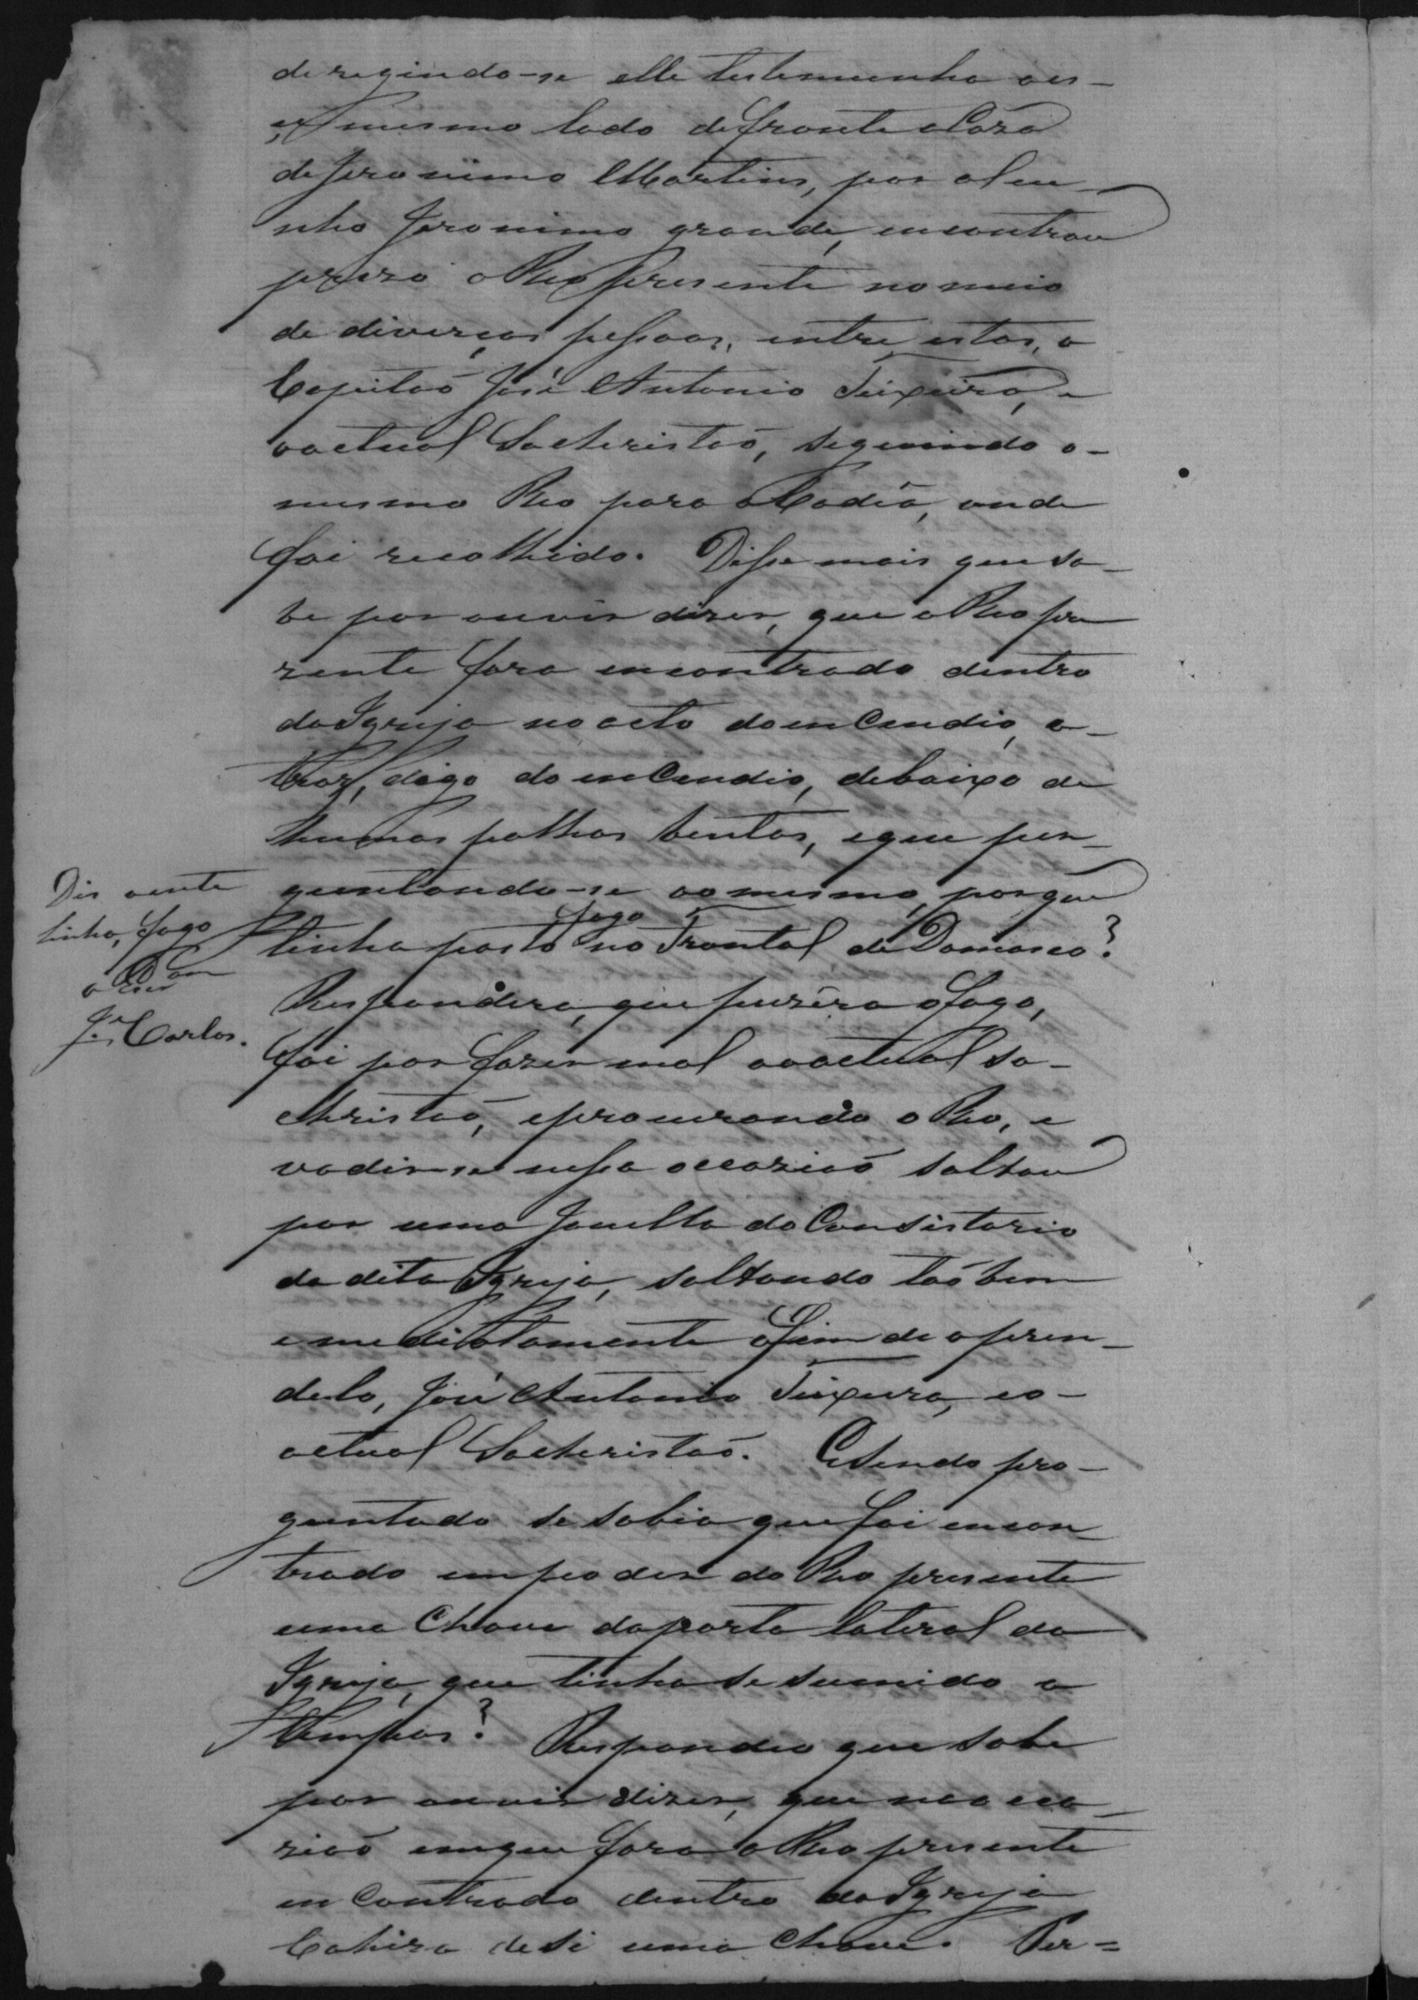 deregindo-se elle testemunha aes-
se mesmo lado defronte a Caza
de Jeronimo Martins, por alcu-
nha Jeronimo grande, encontrou
prezo o Reo prezente no meio
de diverças pessoas, entre estas, o
Capitaõ José Antonio Teixeira, e
o actual Sacheristaõ, seguindo o-
mesmo Reo para a Cadêa, onde
foi recolhido. Disse mais que sa-
be por ouvir dizer, que o Reo pre
zente fora encontrado dentro
da Igreja no acto do inCendio, a-
traz, digo do inCendio, debaixo de
humas palhas bentas, e que pre-
guntando-se ao mesmo, porque
tinha posto fogo no Frontal de Damasco?
Respondêra, que puzéra o fogo,
foi por fazer mal ao actual Sa-
christaõ, e procurando o Reo, e
vadir-se nessa occaziaõ saltou
por uma Janella do Consistorio
da dita Igreja, saltando taõbem
emediatamente a fim de apren-
delo, José Antonio Teixeira, eo-
actual Sacheristaõ. E sendo pre-
guntado se sabia que foi encon
trado em poder do Reo prezente
uma Chave da porta lateral da
Igreja, que tinha se sumido a
tempos? Respondeo que sabe
por ouvir dizer, que na occa-
ziaõ em que fora o Reo prezente
enContrado dentro da Igreja
Cahira de si uma Chave. Per=
Dis a ente
linha, fogo
o Escr.am
J.e Carlos.